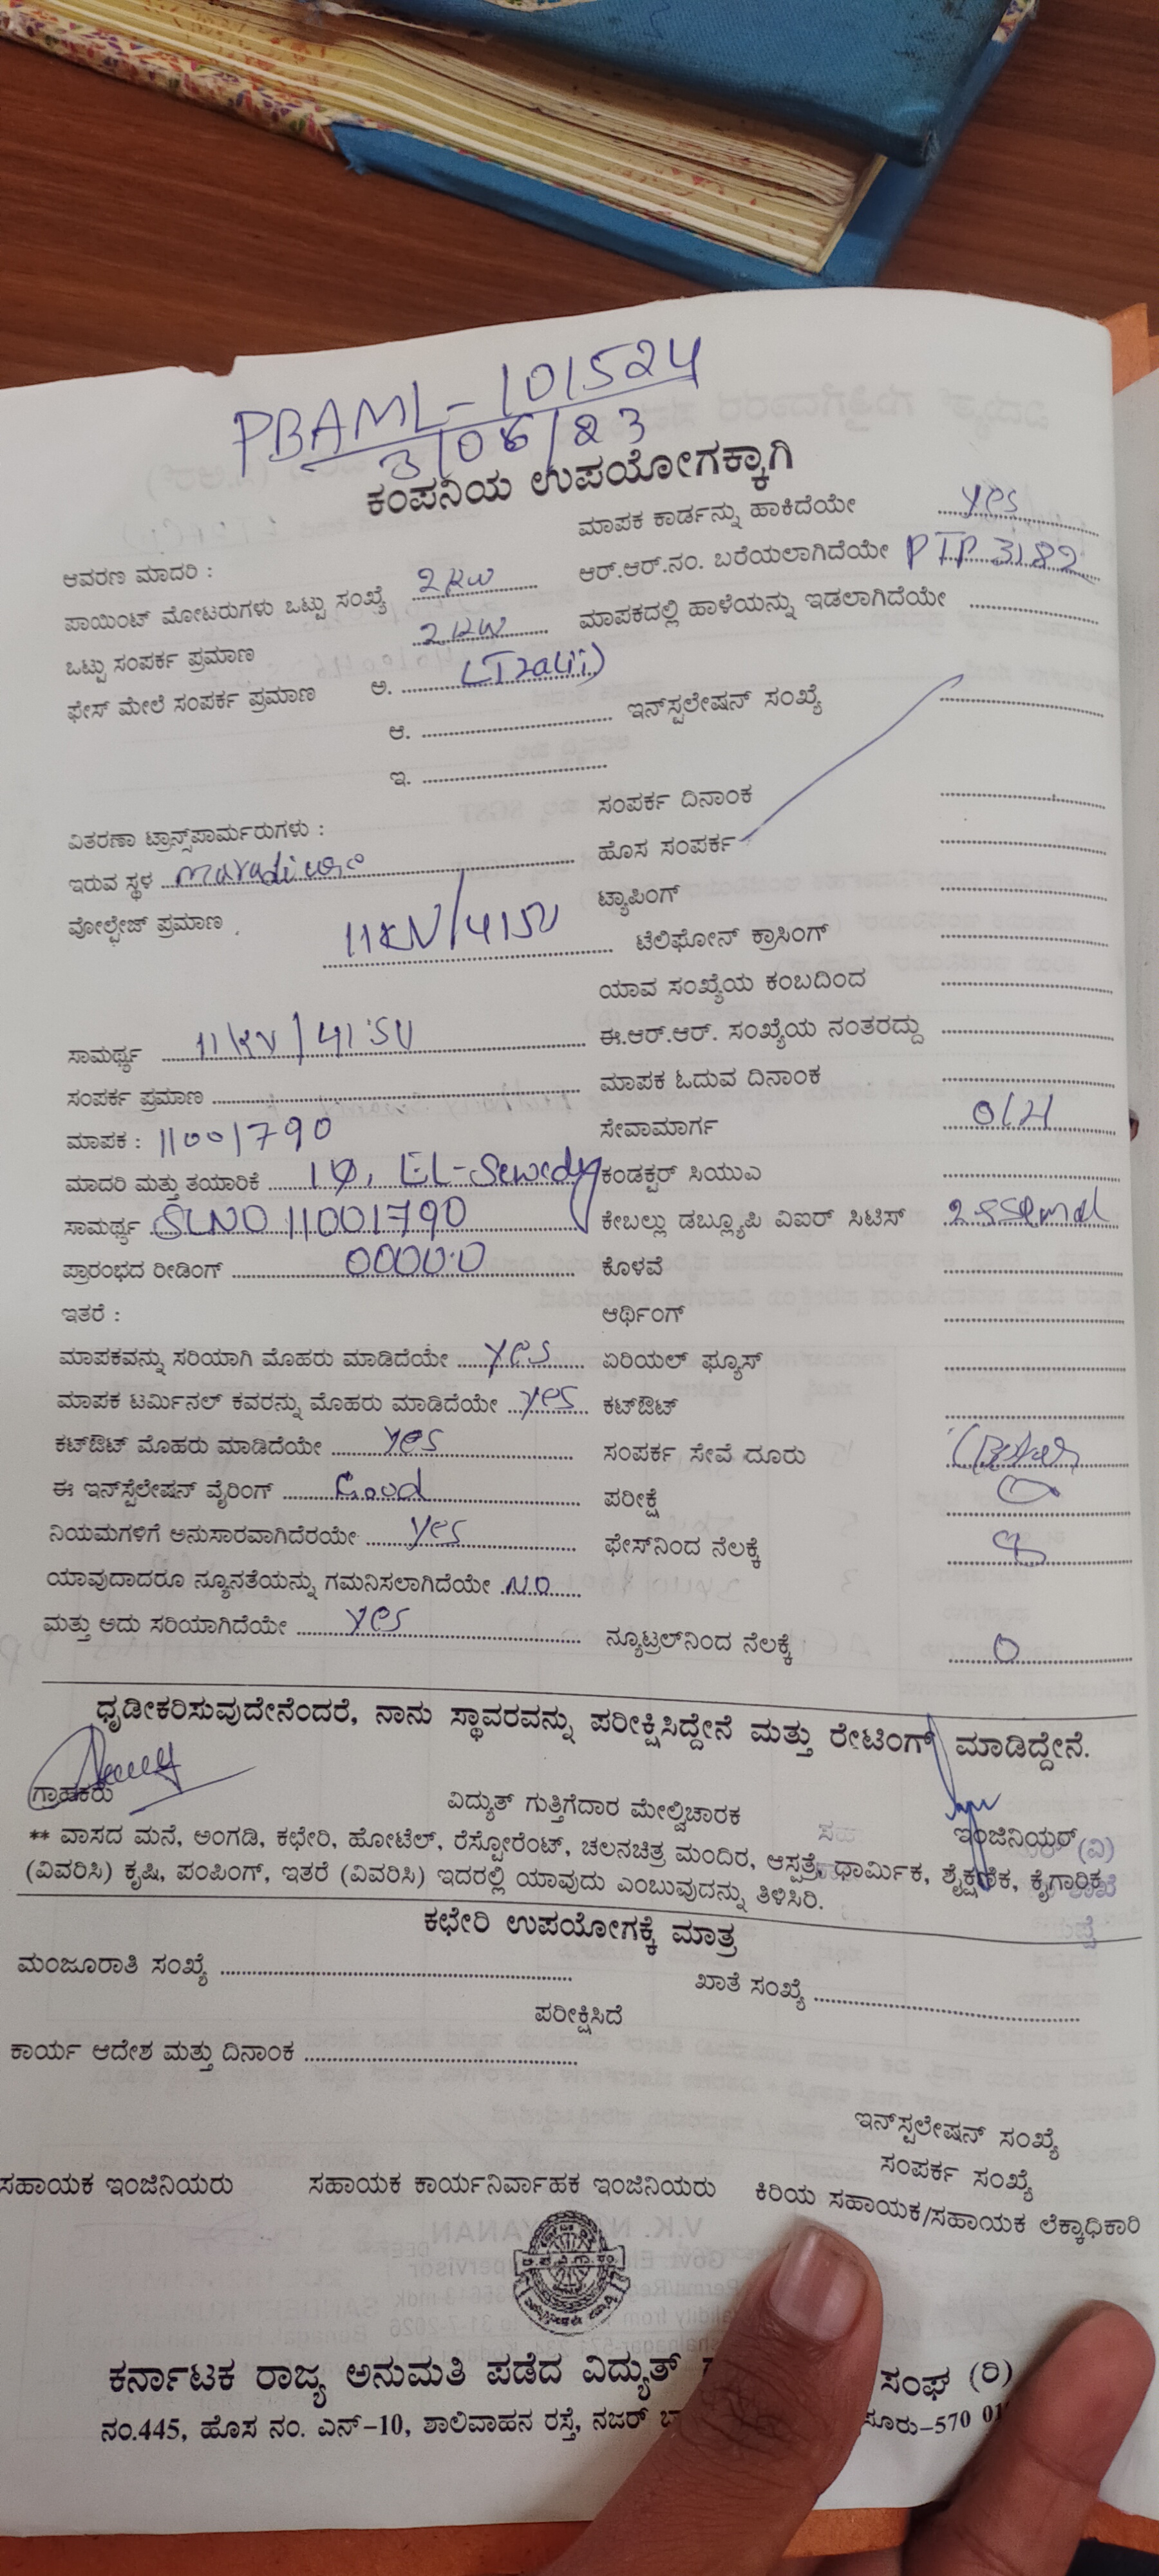 PBAML-101524
3/06/23
ಕಂಪನಿಯ ಉಪಯೋಗಕ್ಕಾಗಿ
ಮಾಪಕ ಕಾರ್ಡನ್ನು ಹಾಕಿದೆಯೇ yes
ಆವರಣ ಮಾದರಿ :
ಆರ್.ಆರ್.ನಂ. ಬರೆಯಲಾಗಿದೆಯೇ PTP 3182
ಪಾಯಿಂಟ್ ಮೋಟರುಗಳು ಒಟ್ಟು ಸಂಖ್ಯೆ 2KW
ಮಾಪಕದಲ್ಲಿ ಹಾಳೆಯನ್ನು ಇಡಲಾಗಿದೆಯೇ
ಒಟ್ಟು ಸಂಪರ್ಕ ಪ್ರಮಾಣ 2KW
ಫೇಸ್ ಮೇಲೆ ಸಂಪರ್ಕ ಪ್ರಮಾಣ ಅ. LT2a(ii)
ಆ. ಇನ್‌ಸ್ಪಲೇಷನ್ ಸಂಖ್ಯೆ
ಇ.
ಸಂಪರ್ಕ ದಿನಾಂಕ
ವಿತರಣಾ ಟ್ರಾನ್ಸ್‌ಪಾರ್ಮರುಗಳು :
ಹೊಸ ಸಂಪರ್ಕ
ಇರುವ ಸ್ಥಳ
ಟ್ಯಾಪಿಂಗ್
ವೋಲ್ಟೇಜ್ ಪ್ರಮಾಣ 11KV/415V
ಟೆಲಿಫೋನ್ ಕ್ರಾಸಿಂಗ್
ಯಾವ ಸಂಖ್ಯೆಯ ಕಂಬದಿಂದ
ಸಾಮರ್ಥ್ಯ 11KV/415V ಈ.ಆರ್.ಆರ್. ಸಂಖ್ಯೆಯ ನಂತರದ್ದು
ಸಂಪರ್ಕ ಪ್ರಮಾಣ ಮಾಪಕ ಓದುವ ದಿನಾಂಕ
ಮಾಪಕ : 11001790 ಸೇವಾಮಾರ್ಗ O/H
ಮಾದರಿ ಮತ್ತು ತಯಾರಿಕೆ 1Φ, EL-Sewedy ಕಂಡಕ್ಟರ್ ಸಿಯುಎ
ಸಾಮರ್ಥ್ಯ SLNO 11001790 ಕೇಬಲ್ಲು ಡಬ್ಲ್ಯೂಪಿ ವಿಐರ್ ಸಿಟಿಸ್
ಪ್ರಾರಂಭದ ರೀಡಿಂಗ್ 0000.0 ಕೊಳವೆ
ಇತರೆ : ಆರ್ಥಿಂಗ್
ಮಾಪಕವನ್ನು ಸರಿಯಾಗಿ ಮೊಹರು ಮಾಡಿದೆಯೇ yes ಏರಿಯಲ್ ಫ್ಯೂಸ್
ಮಾಪಕ ಟರ್ಮಿನಲ್ ಕವರನ್ನು ಮೊಹರು ಮಾಡಿದೆಯೇ yes ಕಟ್‌ಔಟ್
ಕಟ್‌ಔಟ್ ಮೊಹರು ಮಾಡಿದೆಯೇ yes ಸಂಪರ್ಕ ಸೇವೆ ದೂರು
ಈ ಇನ್‌ಸ್ಪೆಲೇಷನ್ ವೈರಿಂಗ್ Good ಪರೀಕ್ಷೆ
ನಿಯಮಗಳಿಗೆ ಅನುಸಾರವಾಗಿದೆರಯೇ yes ಫೇಸ್‌ನಿಂದ ನೆಲಕ್ಕೆ
ಯಾವುದಾದರೂ ನ್ಯೂನತೆಯನ್ನು ಗಮನಿಸಲಾಗಿದೆಯೇ NO
ಮತ್ತು ಅದು ಸರಿಯಾಗಿದೆಯೇ yes ನ್ಯೂಟ್ರಲ್‌ನಿಂದ ನೆಲಕ್ಕೆ 0
ಧೃಡೀಕರಿಸುವುದೇನೆಂದರೆ, ನಾನು ಸ್ಥಾವರವನ್ನು ಪರೀಕ್ಷಿಸಿದ್ದೇನೆ ಮತ್ತು ರೇಟಿಂಗ್ ಮಾಡಿದ್ದೇನೆ.
ಗ್ರಾಹಕರು ವಿದ್ಯುತ್ ಗುತ್ತಿಗೆದಾರ ಮೇಲ್ವಿಚಾರಕ ಇಂಜಿನಿಯರ್
** ವಾಸದ ಮನೆ, ಅಂಗಡಿ, ಕಛೇರಿ, ಹೋಟೆಲ್, ರೆಸ್ಟೋರೆಂಟ್, ಚಲನಚಿತ್ರ ಮಂದಿರ, ಆಸ್ಪತ್ರೆ, ಧಾರ್ಮಿಕ, ಶೈಕ್ಷಣಿಕ, ಕೈಗಾರಿಕ
(ವಿವರಿಸಿ) ಕೃಷಿ, ಪಂಪಿಂಗ್, ಇತರೆ (ವಿವರಿಸಿ) ಇದರಲ್ಲಿ ಯಾವುದು ಎಂಬುವುದನ್ನು ತಿಳಿಸಿರಿ.
ಕಛೇರಿ ಉಪಯೋಗಕ್ಕೆ ಮಾತ್ರ
ಮಂಜೂರಾತಿ ಸಂಖ್ಯೆ ಖಾತೆ ಸಂಖ್ಯೆ
ಪರೀಕ್ಷಿಸಿದೆ
ಕಾರ್ಯ ಆದೇಶ ಮತ್ತು ದಿನಾಂಕ
ಇನ್‌ಸ್ಪಲೇಷನ್ ಸಂಖ್ಯೆ
ಸಂಪರ್ಕ ಸಂಖ್ಯೆ
ಸಹಾಯಕ ಇಂಜಿನಿಯರು ಸಹಾಯಕ ಕಾರ್ಯನಿರ್ವಾಹಕ ಇಂಜಿನಿಯರು ಕಿರಿಯ ಸಹಾಯಕ/ಸಹಾಯಕ ಲೆಕ್ಕಾಧಿಕಾರಿ
ಕರ್ನಾಟಕ ರಾಜ್ಯ ಅನುಮತಿ ಪಡೆದ ವಿದ್ಯುತ್ ಸಂಘ (ರಿ)
ನಂ.445, ಹೊಸ ನಂ. ಎನ್-10, ಶಾಲಿವಾಹನ ರಸ್ತೆ, ನಜರ್